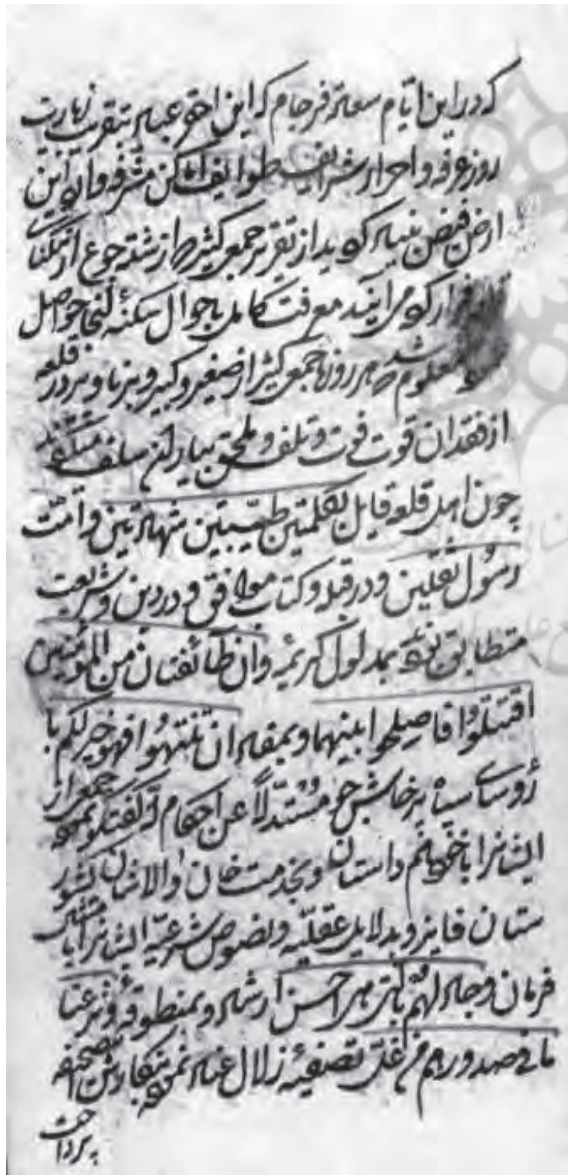 که در این ایام سعادت فرجام که این احقر عباد بتقریب زیارت
روز عرفه و احراز شرایف طوایف اماکن مشرفه وارد این
ارض فیض بنیاد گردید از تقریر جمعی کثیر که از شدت جوع از تنگنای
فرار کرده می‌آیند معرفت کامل باحوال سکنه آنجا حاصل
و معلوم شد که هر روزه جمعی کثیر از صغیر و کبیر و برنا و پیر در قلعه
از فقدان قوت فوت و تلف و ملحق بیاران سلف میگردند
چون اهل قلعه قایل بکلمتین طیبتین شهادتین و امت
رسول ثقلین و در قبله و کتاب موافق و در دین و شریعت
متطابق بودند بمدلول کریمه و ان طائفتان من المؤمنین
اقتتلوا فاصلحوا بینهما و بمفاد ان تنتهوا فهو خیر لکم با
رؤسای سپاه پرخاش جو مستدلاً عن احکام الله گفتگو نموده جمعی از
ایشانرا با خود همداستان و بخدمت خان والاشان کشور
ستان فایز و بدلایل عقلیه و نصوص شرعیه ایشانرا با
فرمان و جادلهم بالتی هی احسن ارشاد و بمنطوقه و نزعنا
ما فی صدورهم من غل تصفیه زلال عناد نموده بنگارش این صحیفه
پرداخت